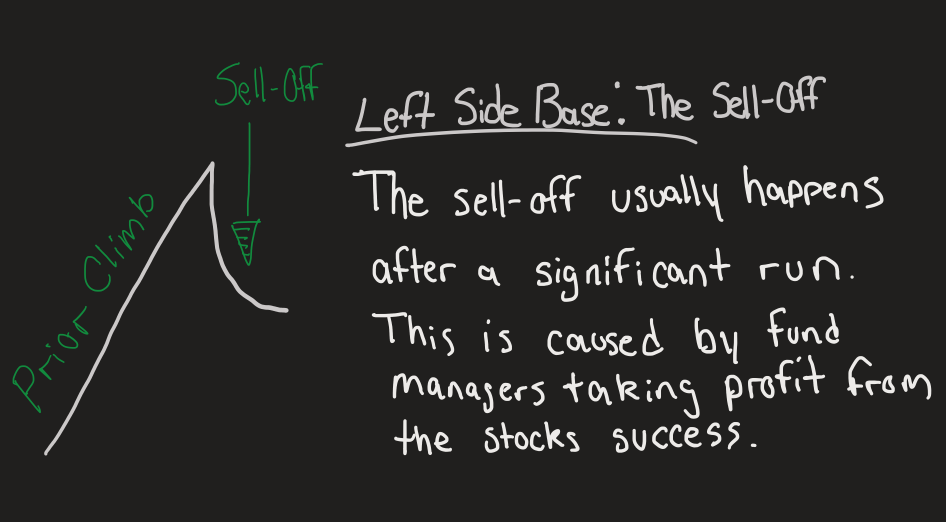 Sell-Off
Prior Climb
Left Side Base: The Sell-Off
The sell-off usually happens
after a significant run.
This is caused by fund
managers taking profit from
the stocks success.